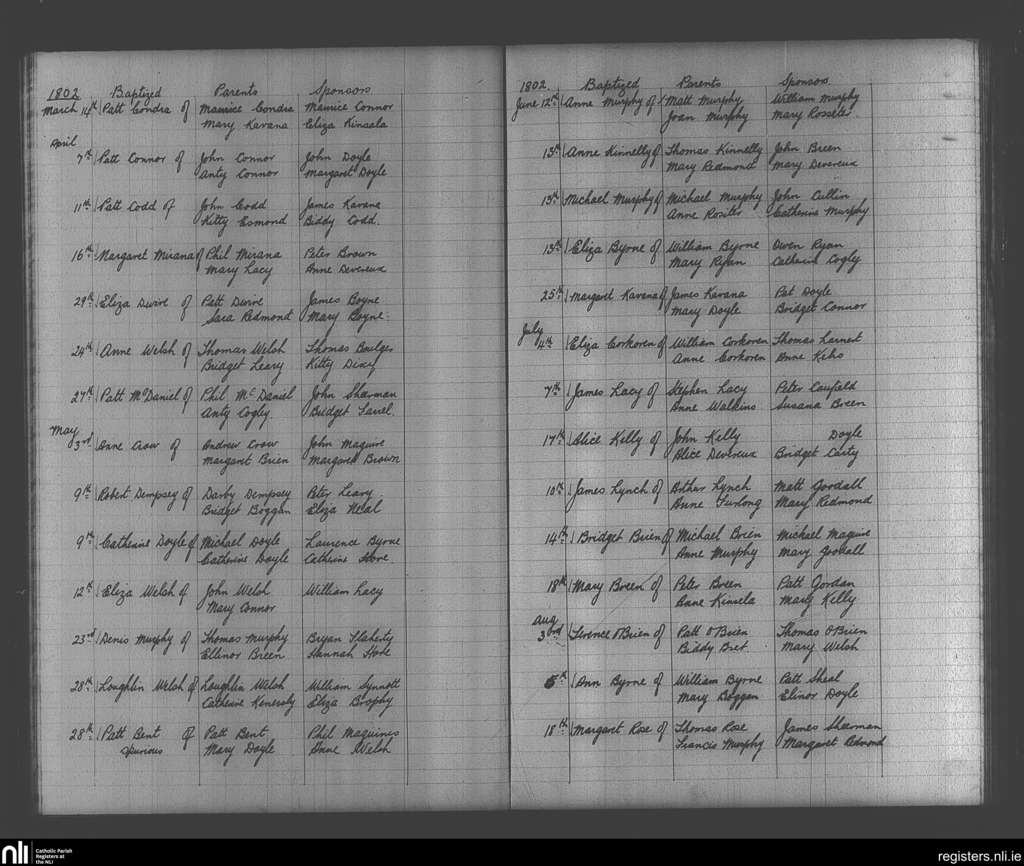 1802 Baptized Parents Sponsors
March 14th Patt Condra of Maurice Condra Maurice Connor
Mary Kavana Eliza Kinsala
April
7th Patt Connor of John Connor John Doyle
Anty Connor Margaret Doyle
11th Patt Codd of John Codd James Kavana
Kitty Esmond Biddy Codd.
16th Margaret Mirana of Phil Mirana Peter Brown
Mary Lacy Anne Devereux
29th Eliza Dwire of Patt Dwire James Boyne
Sara Redmond Mary Boyne.
24th Anne Welsh of Thomas Welsh Thomas Boulger
Bridget Leary Kitty Dixy
27th Patt McDaniel of Phil McDaniel John Sharman
Anty Cogley Bridget
May
3rd Anne Crow of Andrew Crow John Maguire
Margaret Brien Margaret Brown
9th Robert Dempsey of Darby Dempsey Peter Leary
Bridget Boggan Eliza Neal
9th Catherine Doyle of Michael Doyle Laurence Byrne
Catherine Doyle Catherine Hore.
12th Eliza Welsh of John Welsh William Lacy
Mary Connor
23rd Denis Murphy of Thomas Murphy Bryan Flaherty
Ellinor Breen Hannah Hore
28th Loughlin Welsh of Loughlin Welsh William Synnott
Catherine Eliza Brophy
28th Patt Bent of Patt Bent Phil Maguines
Spurious Mary Doyle Anne Welsh
1802 Baptized Parents Sponsors
June 12th Anne Murphy of Matt Murphy William Murphy
Joan Murphy Mary Rosseter
13th Anne Kinnelly of Thomas Kinnelly John Breen
Mary Redmond Mary Devereux
13th Michael Murphy of Michael Murphy John Cullin
Anne Rositer Catherine Murphy
13th Eliza Byrne of William Byrne Owen Ryan
Mary Ryan Catherin Cogly
25th Margaret Kavana of James Kavana Pat Doyle
Mary Doyle Bridget Connor
July
4th Eliza Corkoren of William Corkoren Thomas Larnest
Anne Corkoren Anne Keho
7th James Lacy of Stephen Lacy Peter Caufield
Anne Walkins Susana Breen
17th Alice Kelly of John Kelly Doyle
Alice Devereux Bridget Carty
10th James Lynch of Arthur Lynch Matt Goodall
Anne Furlong Mary Redmond
14th Bridget Brien of Michael Brien Michael Maguire
Anne Murphy Mary Goodall
18th Mary Breen of Peter Breen Patt Gordan
Anne Kinsela Mary Kelly
Aug
3rd Terence O'Brien of Patt O'Brien Thomas O'Brien
Biddy Bret. Mary Welsh
5th Ann Byrne of William Byrne Patt Sheal
Mary Boggan Elinor Doyle
18th Margaret Rose of Thomas Rose James Sharman
Francis Murphy Margaret Redmond
nli Catholic Parish
Registers at
the NLI
registers.nli.ie